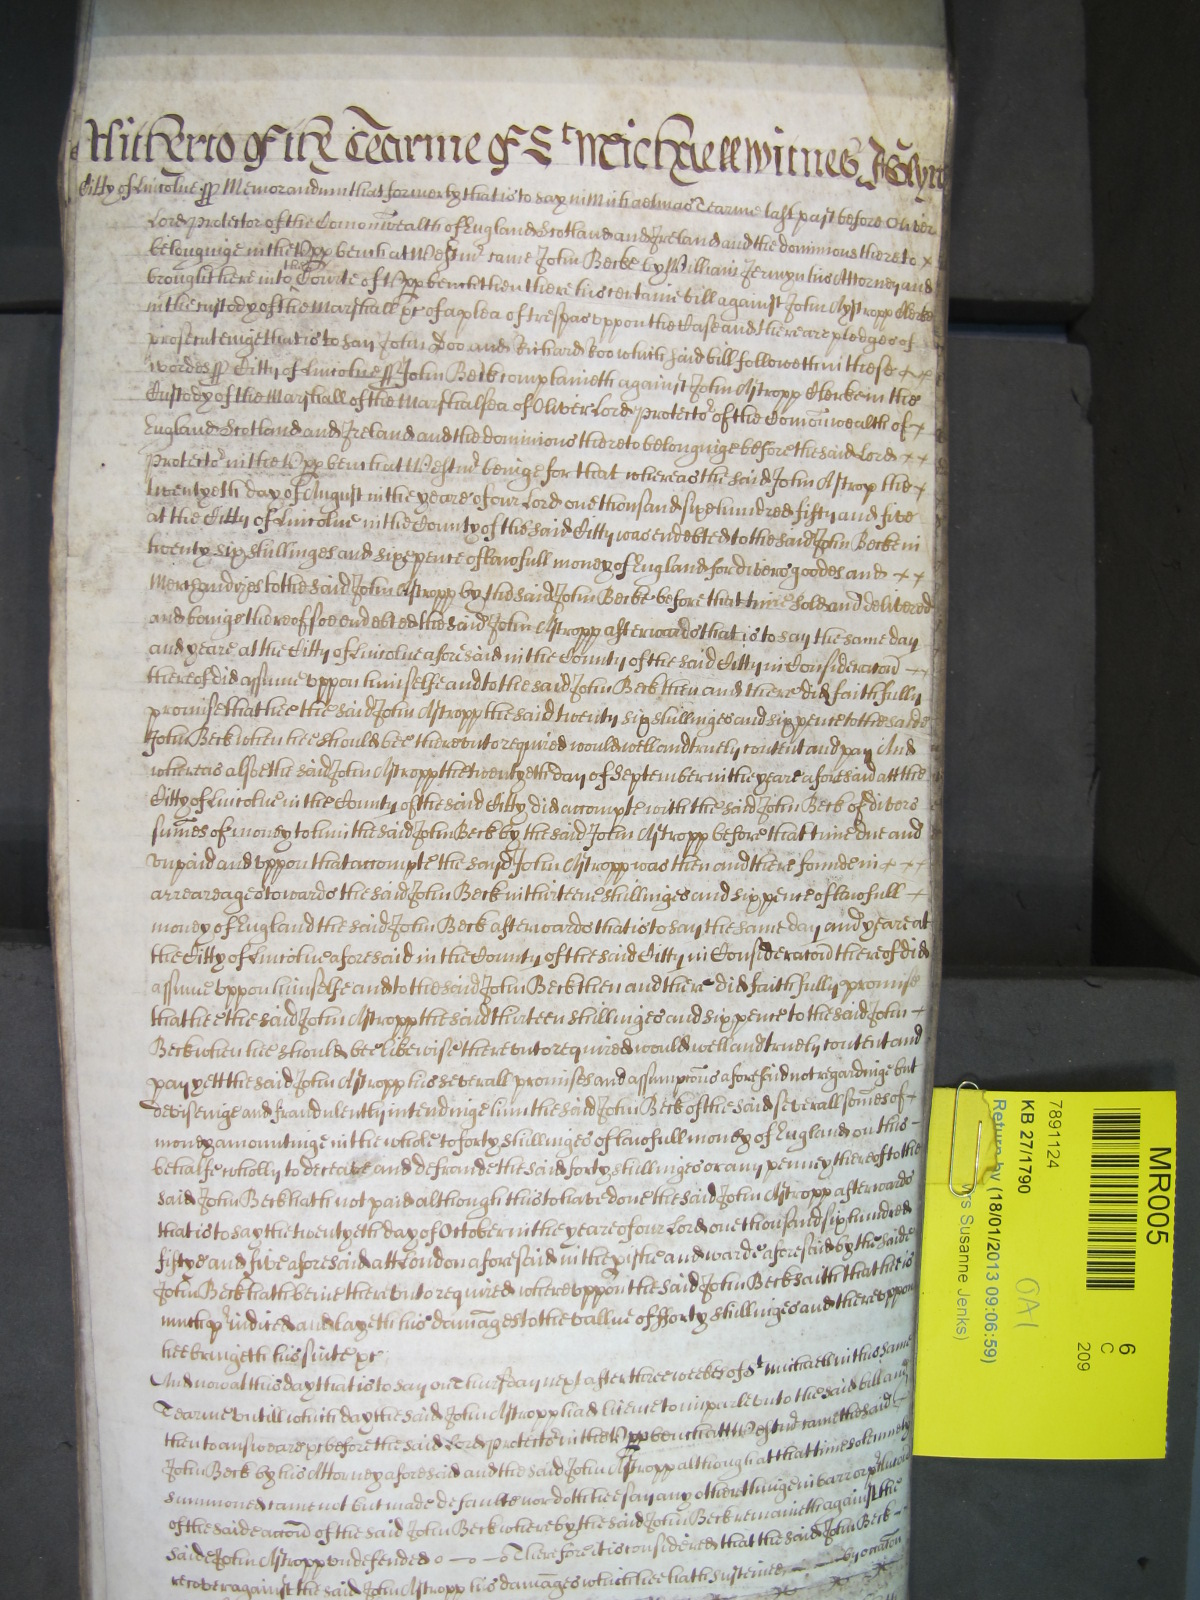 Hitherto of the Tearme of St Michaell witnes J Glyn
Citty of Lincolne ss Memorandum that formerly that is to say in Michaelmas Tearme last past before Oliver
Lord Protector of the Comonwealth of England Scotland and Ireland and the dominions thereto x
belonginge in the Upp bench at Westmr came John Becke by William Jermyn his Attorney and
brought here into the Courte of Upp bench then there his certaine bill against John Aystropp Clerke
in the custody of the Marshall &c of a plea of trespas uppon the Case and there are pledges of
prosecuteinge that is to say John Doo and Richard Roo which said bill followeth in these x x
wordes ss Citty of Lincolne ss John Beck complaineth against John Astropp Clerke in the
Custody of the Marshall of the Marshalsea of Oliver Lord Protector of the Comonwealth of x
England Scotland and Ireland and the dominions thereto belonginge before the said Lord x x
Protector in the Upp bench at Westmr beinge for that whereas the said John Astropp the x
twentyeth day of August in the yeare of our Lord one thousand six hundred fifty and five
at the Citty of Lincolne in the County of the said Citty was endebted to the said John Becke in
twenty six shillinges and six pence of lawfull money of England for divers goodes and x x
Merchandizes to the said John Astropp by the said John Becke before that time sold and delivered
and beinge thereof soe endebted the said John Astropp afterwards that is to say the same day
and yeare at the Citty of Lincolne aforesaid in the County of the said Citty in Consideracon
thereof did assume uppon himselfe and to the said John Beck then and there did faithfully
promise that hee the said John Astropp the said twenty six shillinges and six pence to the saide
John Beck when hee should bee thereunto required would well and truely content and pay And
whereas alsoe the said John Astropp the twentyeth day of September in the yeare aforesaid att the
Citty of Lincolne in the County of the said Citty did accompte with the said John Beck of divers
sumes of money to him the said John Beck by the said John Astropp before that time due and
unpaid and uppon that accompte the sayd John Astropp was then and there founde in x x x
arrearages towards the said John Beck in thirteene shillinges and six pence of lawfull
money of England the said John Beck afterwards that is to say the same day and yeare at
the Citty of Lincolne aforesaid in the County of the said Citty in Consideracon thereof did
assume uppon himselfe and to the said John Beck then and there did faithfully promise
that hee the said John Astropp the said thirteen shillinges and six pence to the said John
Beck when hee should bee likewise thereunto required would well and truely content and
pay yett the said John Astropp his severall promises and assumptions aforesaid not regardinge but
devisinge and fraudulently intendinge him the said John Beck of the said severall somes of
money amountinge in the whole to forty shillinges of lawfull money of England on this
behalfe wholly to deceave and defraude the said forty shillinges or any penney thereof to the
said John Beck hath not paid although this to have done the said John Astropp afterwards
that is to say the twentyeth day of October in the yeare of our Lord one thousand six hundred
fiftye and five aforesaid att London aforesaid in the pishe and warde aforesaid by the saide
John Beck hath beine thereunto required whereuppon the said John Beck saith that hee is
indiced and layeth his damages to the vallue of fforty shillinges and thereuppon
hee bringeth his suite &c
And now at this day that is to say on Thursday next after three weekes of St Michaell in this same
Tearme untill which day the said John Astropp had licence to imparle unto the said bill and
then to answeare &c before the said Lord Protector in the Upp bench att Westmr came the said
John Beck by his Attorney aforesaid and the said John Astropp although at that time solemnely
summoned came not but made defaulte nor doth hee say any other thinge in barr or
of the saide accon of the said John Beck whereby the said John Beck remaineth against the
saide John Astropp undefended Therefore it is considered that the said John Beck
recover against the said John Astropp his damages which hee hath susteined by occasion
MR005
6
C
209
7891124
KB 27/1790
Return by (18/01/2013 09:06:59)
Mrs Susanne Jenks)
OA1